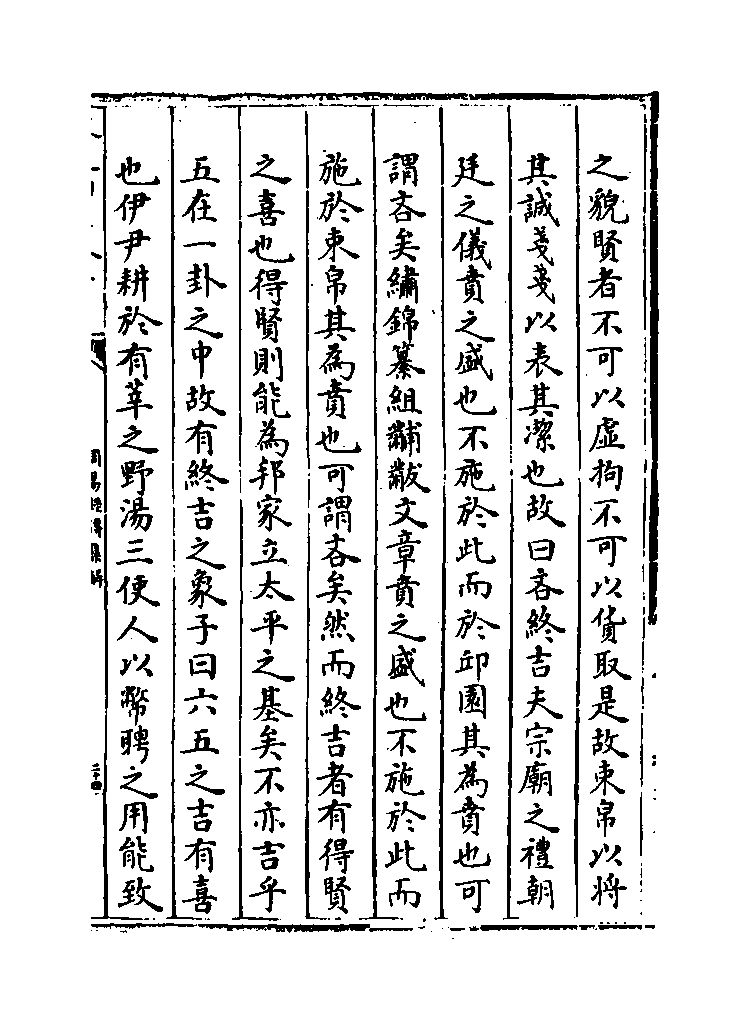 之貌賢者不可以虛拘不可以貨取是故束帛以将
其誠戔戔以表其潔也故曰吝終吉夫宗廟之禮朝
廷之儀賁之盛也不施於此而於邱園其為賁也可
謂吝矣繡錦纂組黼黻文章賁之盛也不施於此而
施於束帛其為賁也可謂吝矣然而終吉者有得賢
之喜也得賢則能為邦家立太平之基矣不亦吉乎
五在一卦之中故有終吉之象子曰六五之吉有喜
也伊尹耕於有莘之野湯三使人以幣聘之用能致
周易經傳集解
二十四